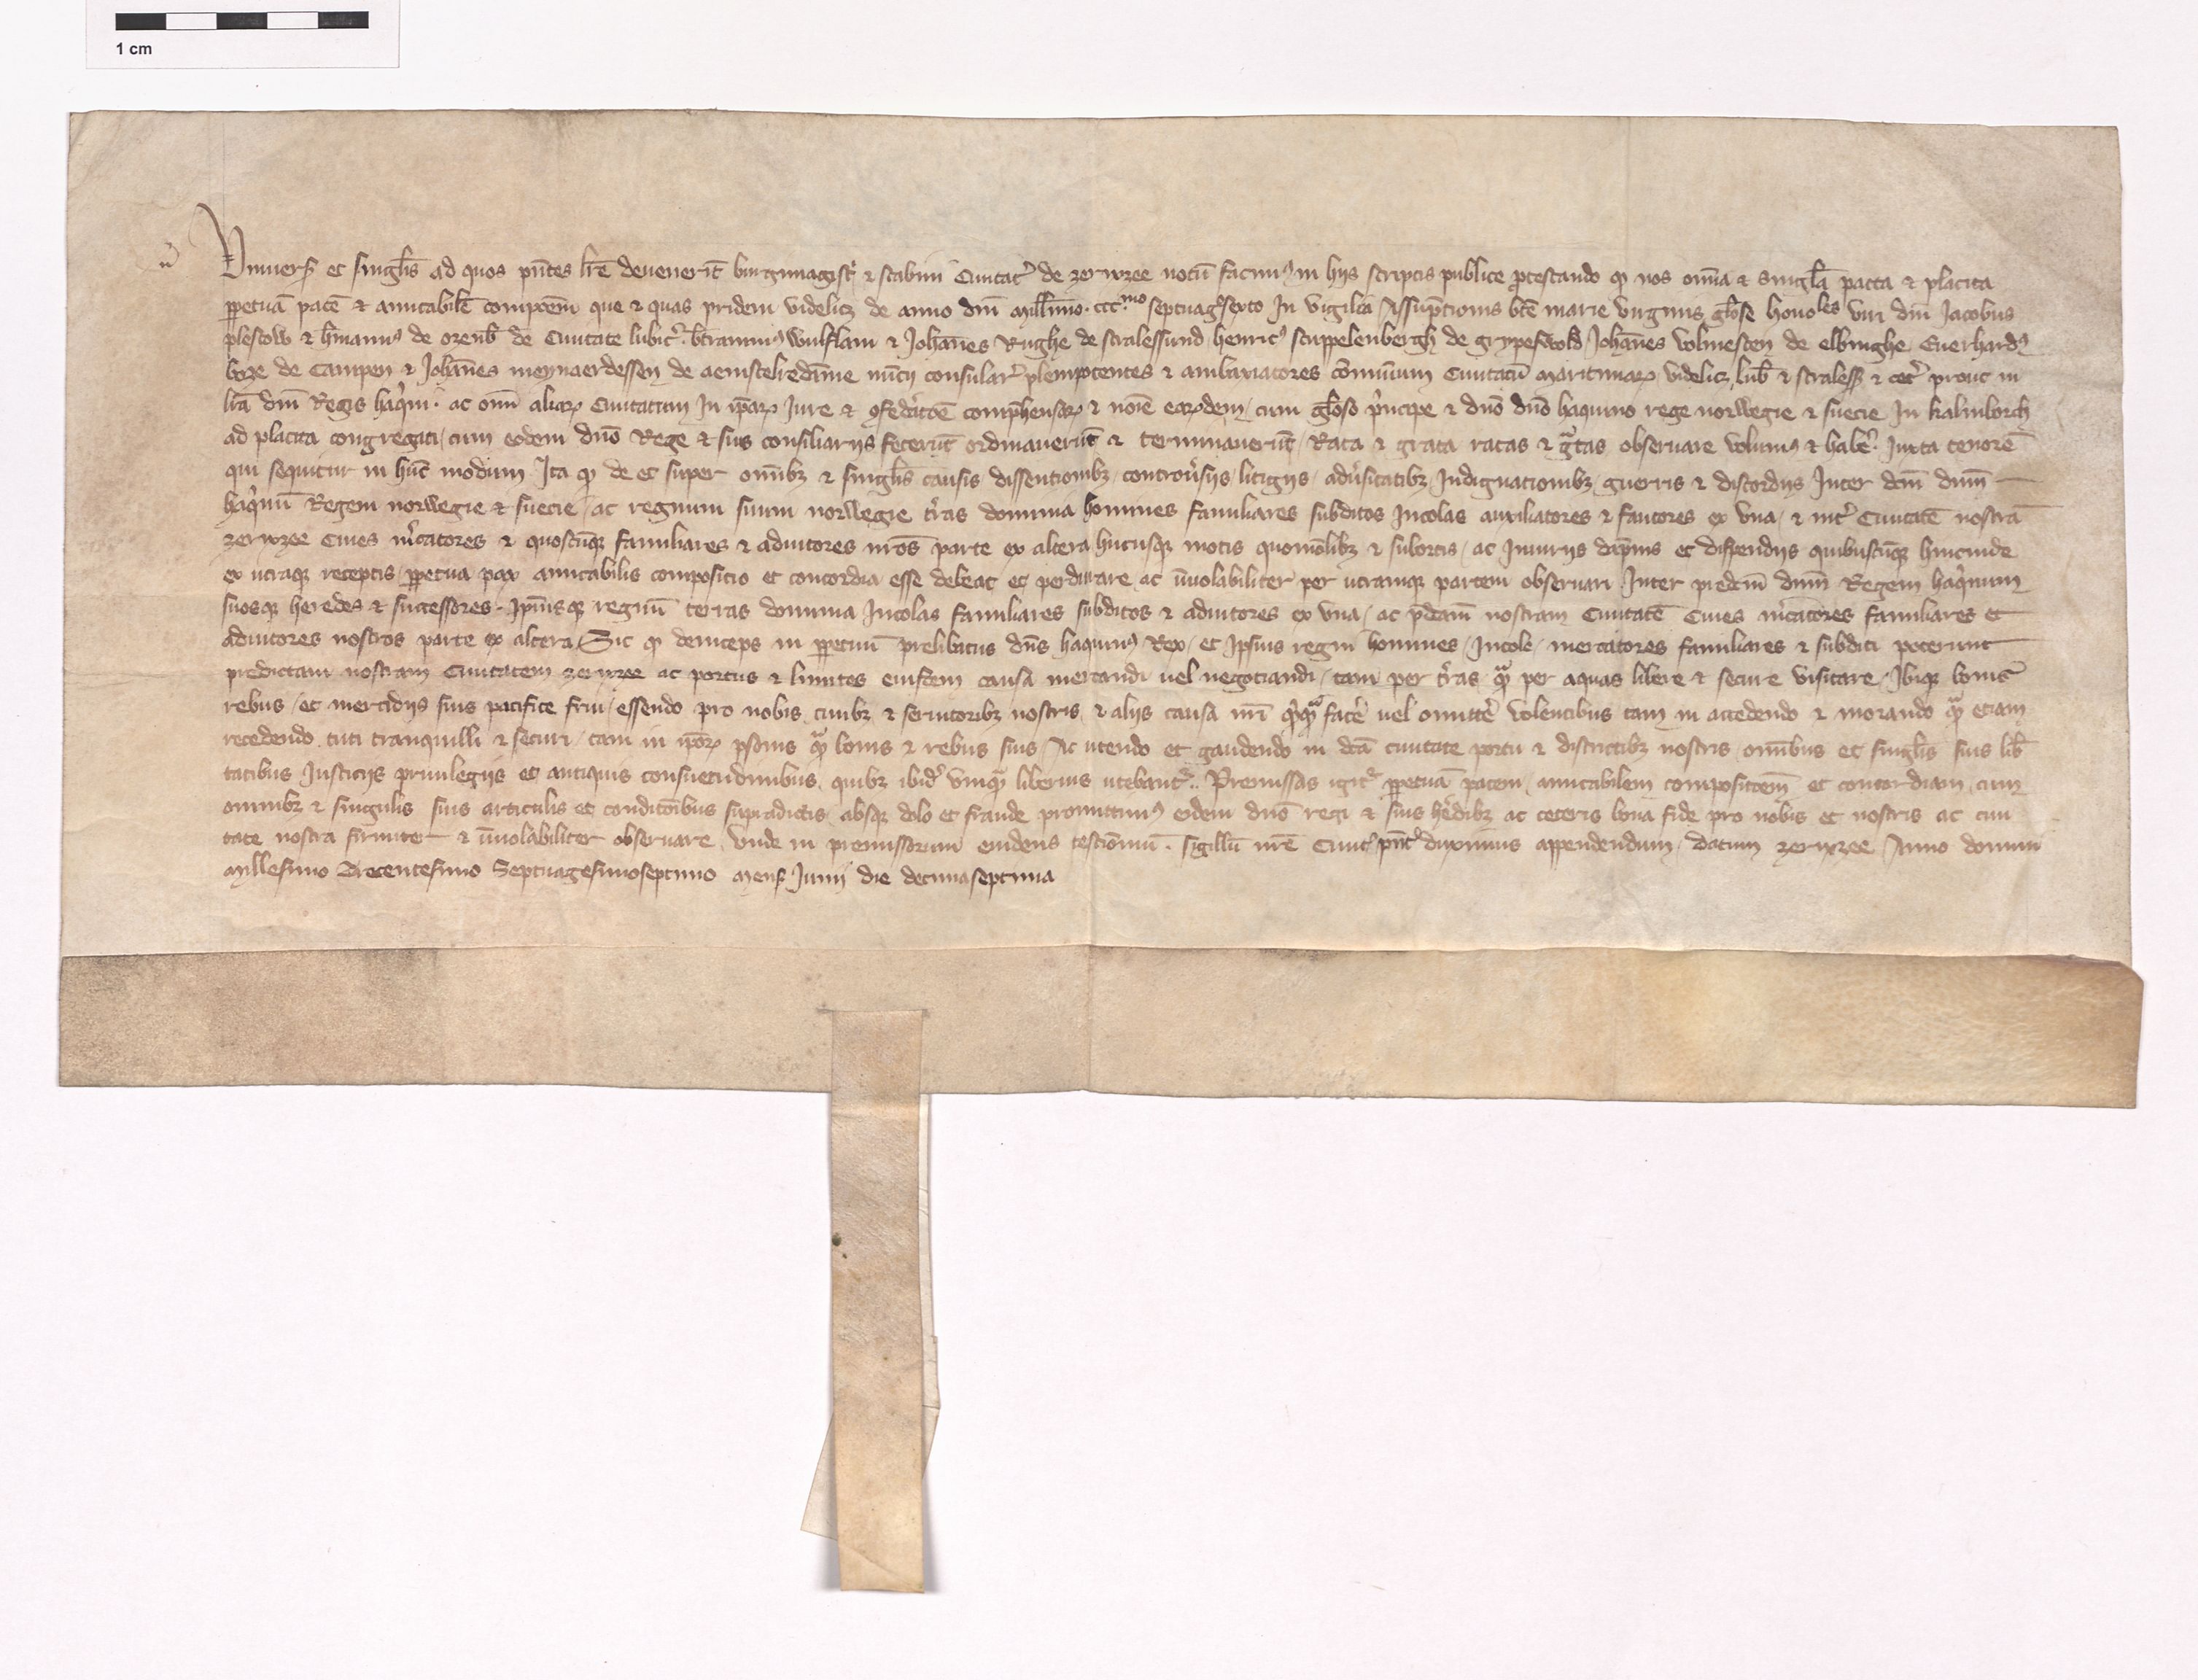 1 cm
Vniuers̄ et singl̄is ad quos pn̄tes lr̄e deuenerīt burgimagistr̉ ⁊ scabini Ciuitat̉ de zerixzee notū facimꝰ in hijs scriptis publice ꝓtestando ꝙ nos om̄ia ⁊ singl̄a pacta ⁊ placita
ꝑpetuā pacē ⁊ amicabilē compot̄oem̄ que ⁊ quas pridem videlicꝫ de anno dn̄i mill̄imo · ccc.mo septuagºsexto In vigilia Assūptionis bt̄e marie virginis, gl̄ose honoles viri dn̄i Jacobus
plescow ⁊ h̄mannꝰ de ozenb̄ de Ciuitate lubic̉ · b̄trammꝰ wulflam ⁊ Joh̄nes Rughe de stralessund henricꝰ scuppelenbergh de grypeswold Joh̄nes volmesten de elbinghe Euerhardꝰ
boze de Campen ⁊ Joh̄nes meynaerdessen de aemstelredāme nūcij consular̉ plenipotentes ⁊ ambaxiatores cōmūnium Ciuitatū maritimaꝝ videlicꝫ lub̄ ⁊ straless̄ ⁊ cet̉ prout in
lr̄a dn̄i Regis haq̉ni · ac om̄i aliaꝝ Ciuitatum in ip̄aꝝ Iure ⁊ ꝯfed̉atōe comp̄hensaꝝ ⁊ noīe earꝝdem cum gl̄oso p̉ncipe ⁊ dn̄o dn̄o haquino rege norwegie ⁊ suecie In kalinborch
ad placita congregati cum eodem dn̄o Rege ⁊ suis consiliarijs fecerūt ordinauerūt ⁊ terminauerūt Rata ⁊ grata ratas ⁊ gᵃtas obseruare volumꝰ ⁊ hab̉e · Iuxta tenorē
qui sequitur in hūc modum Ita ꝙ de et super om̄ibꝫ ⁊ singl̄is causis dissentionibꝫ controủsijs litigijs adủsitatibꝫ Indignationibꝫ guerris ⁊ discordijs Inter dc̄m dn̄m
haq̉nū Regem norwegie ⁊ suecie ac regnum suum norwegie t̉ras dominia homines familiares subditos Incolas auxiliatores ⁊ fautores ex vna ⁊ int̉ Ciuitatē nostrā
zerixzee Ciues m̉catores ⁊ quoscūqꝫ familiares ⁊ adiutores nr̄os parte ex altera hucusqꝫ motis quomōlibꝫ ⁊ subortis ac Iniurijs dāpnis et dispendijs quibuscūqꝫ hincinde
ex utraqꝫ receptis ꝑpetua pax amicabilis compositio et concordia esse debeat et perdurare ac īuiolabiliter per utramqꝫ partem obseruari Inter predc̄m dn̄m Regem haq̉num
suosqꝫ heredes ⁊ successores · Ip̄iusqꝫ regnū terras dominia Incolas familiares subditos ⁊ adiutores ex vna ac p̄dcam̄ nostram Ciuitatē Ciues m̉catores familiares et
adiutores nostros parte ex altera Sic ꝙ deinceps in ꝑpetuū prelibatus dn̄s haquinꝰ Rex et Ipsius regni homines Incole mercatores familiares ⁊ subditi poterunt
predictam nostram Ciuitatem zerixzee ac portus ⁊ limites eiusdem causa mercandi uel negociandi tam per t̉ras qᵃ per aquas libere ⁊ secure visitare Ibiqꝫ bonis
rebus et mercidijs suis pacifice frui essendo pro nobis ciuibꝫ ⁊ seruitoribꝫ nostris ⁊ alijs causa nr̄i q̉cqᵃ fac̉e uel omitt̉e volentibus tam in accedendo ⁊ morando qᵃ etiam
recedendo tuti tranquilli ⁊ securi tam in ip̄oꝝ ꝑsonis qᵃ bonis ⁊ rebus suis Ac utendo et gaudendo in dc̄a ciuitate portu ⁊ districtibꝫ nostris om̄ibus et singl̄is suis lib̄
tatibus Iusticijs priuilegijs et antiquis consuetudinibus quibꝫ ibid̉ vmqᵃ liberius utebant̉ .. Premissas igit̉ ꝑpetuā pacem amicabilem compositoēm et concordiam cum
omnibꝫ ⁊ singulis suis articulis et condictōibus supradictis absqꝫ dolo et fraude promittimꝰ eidem dn̄o regi ⁊ suis hēdibꝫ ac ceteris bona fide pro nobis et nostris ac ciui
tate nostra firmiter ⁊ īuiolabiliter obseruare vnde in premissorum euidens testiōmū · sigillū nr̄e Ciuit̉ pn̄t̉ duximus appendendum datum zerixzee Anno domini
Millesimo Trecentesimo Septuagesimoseptimo mens̄ Iunij die decimaseptima